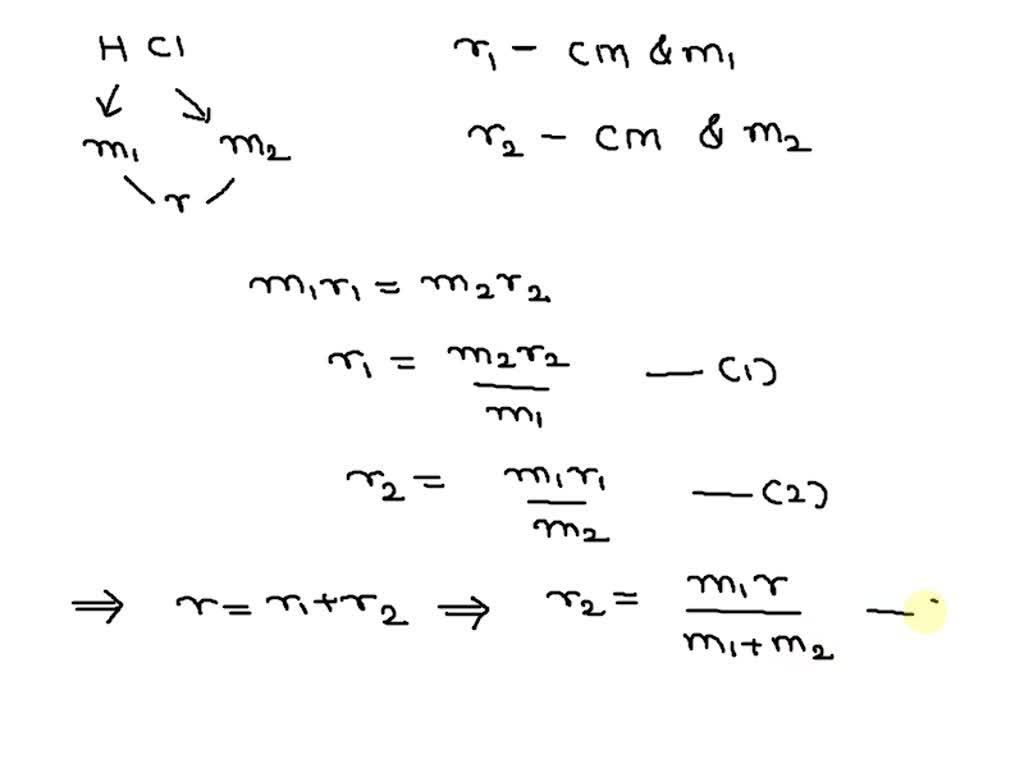 H Cl r₁ – cm & m₁
m₁ m₂ r₂ – cm & m₂
r
m₁r₁ = m₂r₂
r₁ = m₂r₂ / m₁ — (1)
r₂ = m₁r₁ / m₂ — (2)
⇒ r = r₁ + r₂ ⇒ r₂ = m₁r / m₁ + m₂ —